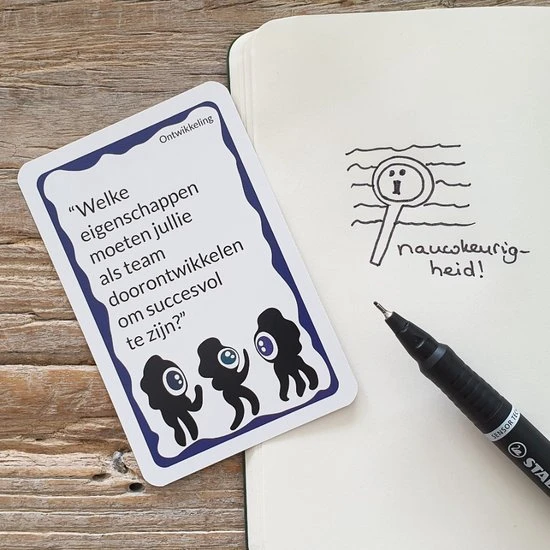 Ontwikkeling
“Welke
eigenschappen
moeten jullie
als team
doorontwikkelen
om succesvol
te zijn?”
nauwkeurig-
heid!
SENSOR TEC
STAB